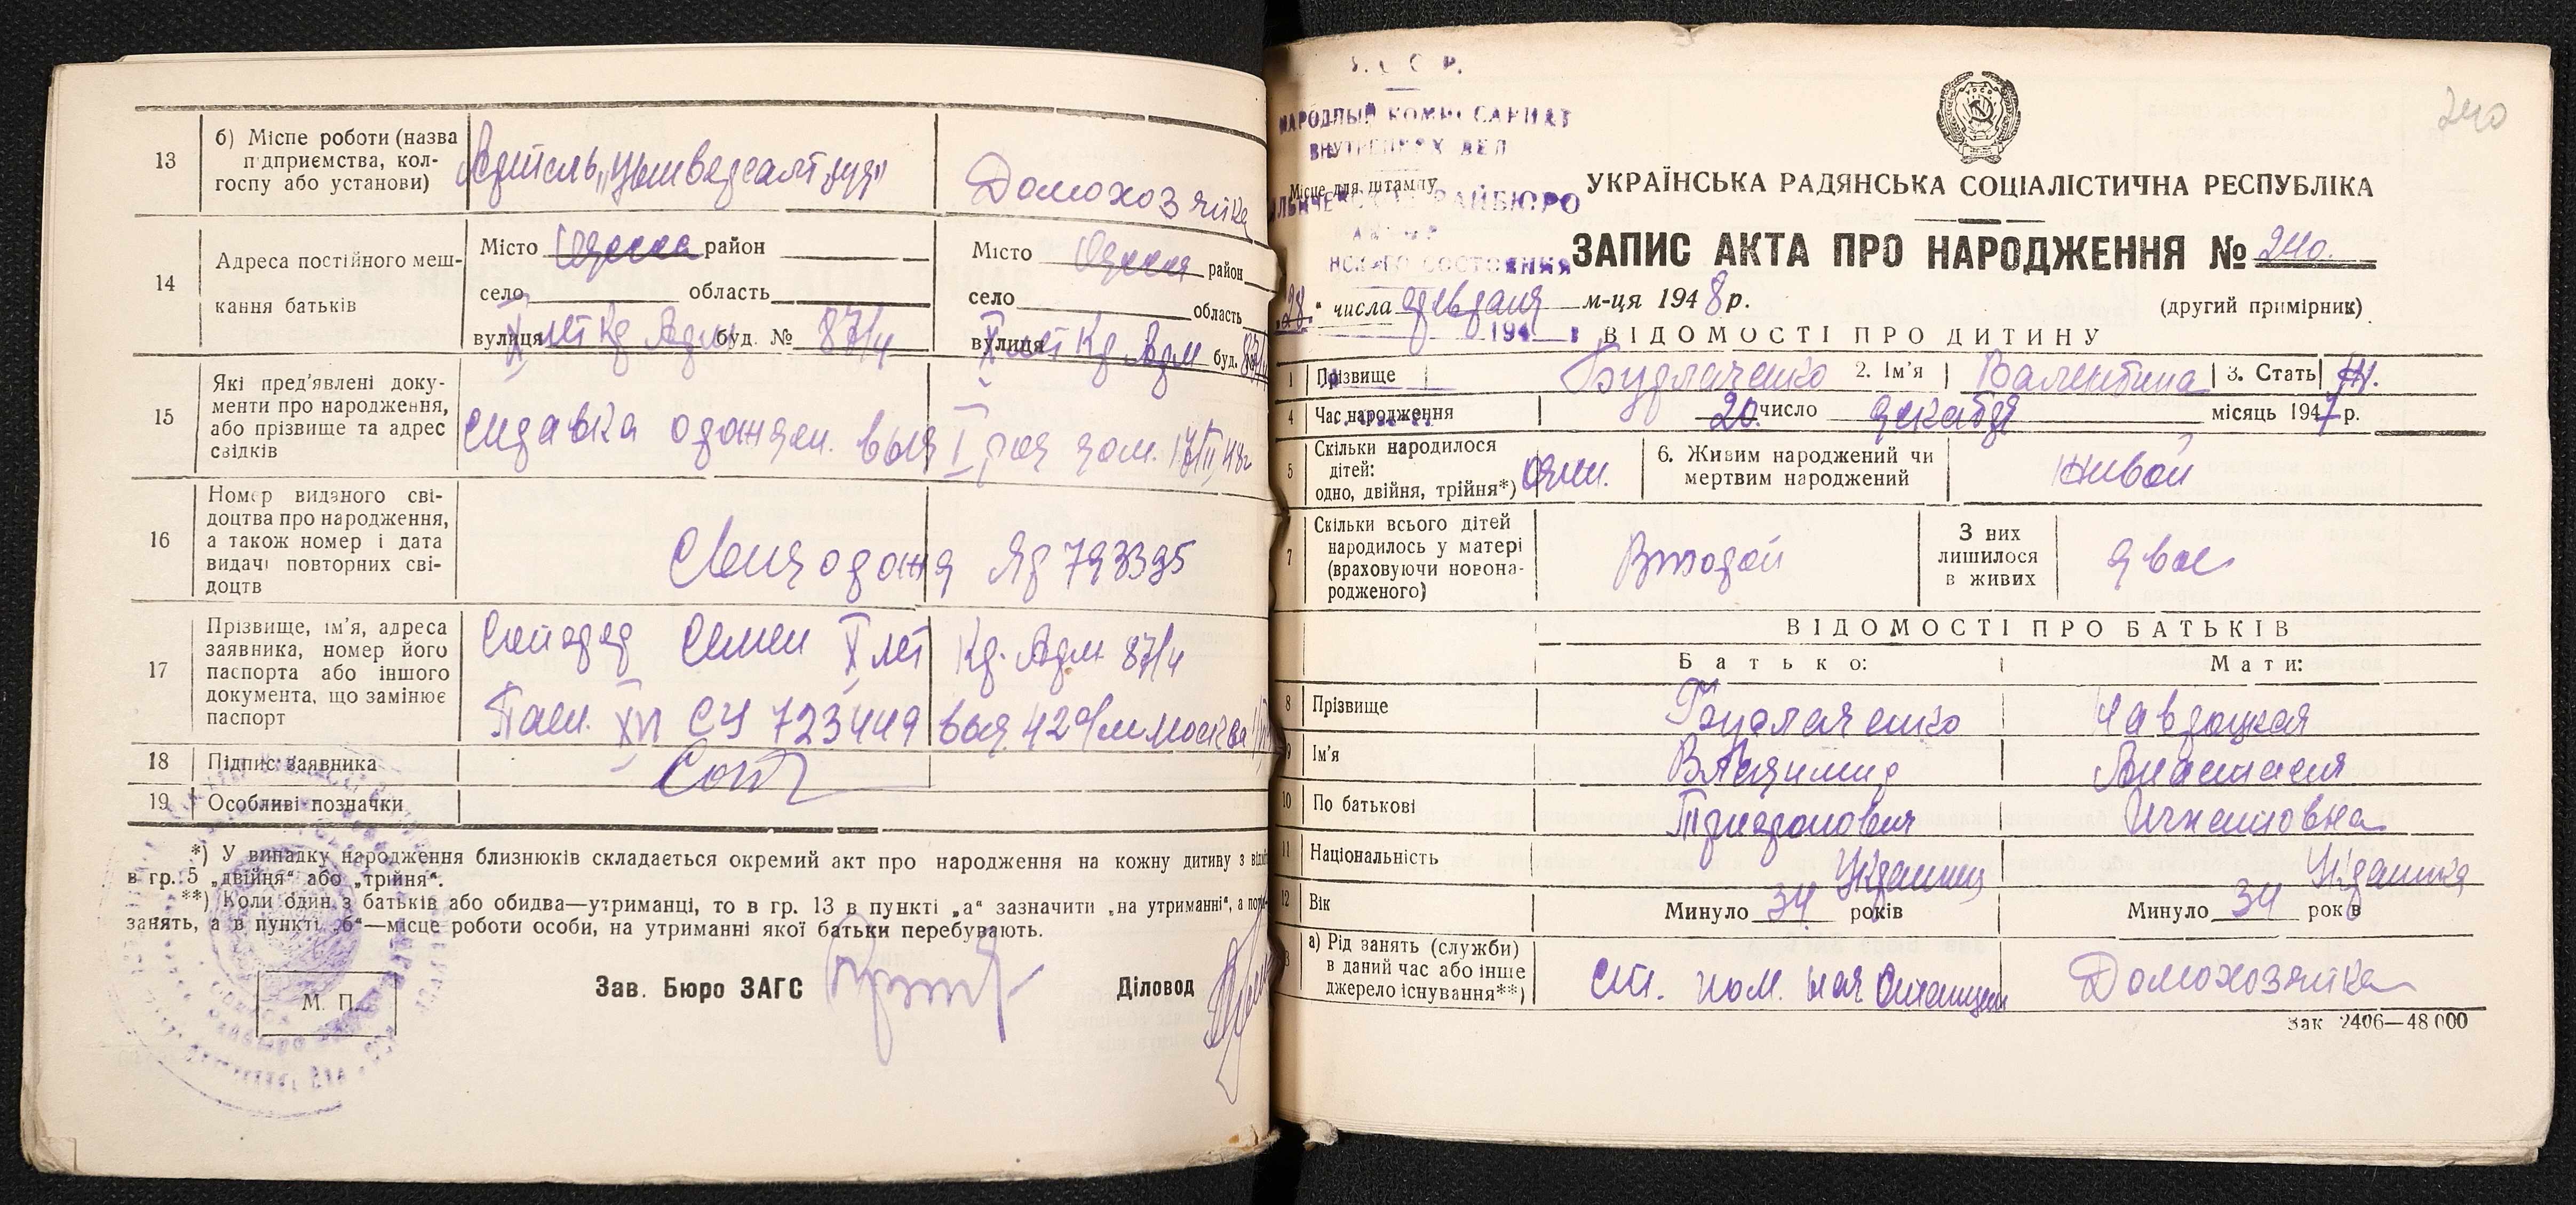 13
б) Місце роботи (назва підприємства, колгоспу або установи)
Домохозяйка
14
Адреса постійного мешкання батьків
Місто Одесса район
село область
вулиця X лет Кр Арм буд. № 87/4
Місто Одесса район
село область
вулиця X лет Кр Арм буд. 87/4
15
Які пред'явлені документи про народження, або прізвище та адрес свідків
справка о рожден. выд I род дом. 17/II 48г
16
Номер виданого свідоцтва про народження, а також номер і дата видачі повторних свідоцтв
793395
17
Прізвище, ім'я, адреса заявника, номер його паспорта або іншого документа, що замінює паспорт
Семен X лет Кр. Арм 87/4
Пасп. СЧ 723449 выд 42 Москва
18
Підпис заявника
19
Особливі позначки
*) У випадку народження близнюків складається окремий акт про народження на кожну дитину з
в гр. 5 „двійня“ або „трійня“.
**) Коли один з батьків або обидва—утриманці, то в гр. 13 в пункті „а“ зазначити „на утриманні“, а
занять, а в пункті „б“—місце роботи особи, на утриманні якої батьки перебувають.
М. П.
Зав. Бюро ЗАГС
Діловод
240
НАРОДНЫЙ КОМИССАРИАТ
ВНУТРЕННИХ ДЕЛ
Місце для штампу
РАЙБЮРО
СОСТОЯНИЯ
УКРАЇНСЬКА РАДЯНСЬКА СОЦІАЛІСТИЧНА РЕСПУБЛІКА
ЗАПИС АКТА ПРО НАРОДЖЕННЯ № 240.
„28“ числа февраля м-ця 1948 р.
(другий примірник)
194
ВІДОМОСТІ ПРО ДИТИНУ
1 Прізвище Бурлаченко 2. Ім'я Валентина 3. Стать Ж.
4 Час народження 20 число декабря місяць 1947 р.
5 Скільки народилося дітей: одно, двійня, трійня*) один. 6. Живим народжений чи мертвим народжений Живой
7 Скільки всього дітей народилось у матері (враховуючи новонародженого) Второй З них лишилося в живих двое
ВІДОМОСТІ ПРО БАТЬКІВ
Батько: Мати:
8 Прізвище Бурлаченко Навроцкая
9 Ім'я Владимир Анастасия
10 По батькові Трифонович Игнатовна
11 Національність Украинец Украинка
12 Вік Минуло 34 років Минуло 34 років
а) Рід занять (служби) в даний час або інше джерело існування**) ст. пом. нач Станции Домохозяйка
Зак 2406—48 000